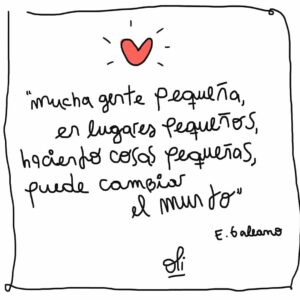 "mucha gente pequeña,
en lugares pequeños,
haciendo cosas pequeñas,
puede cambiar
el mundo"
E. Galeano
oli